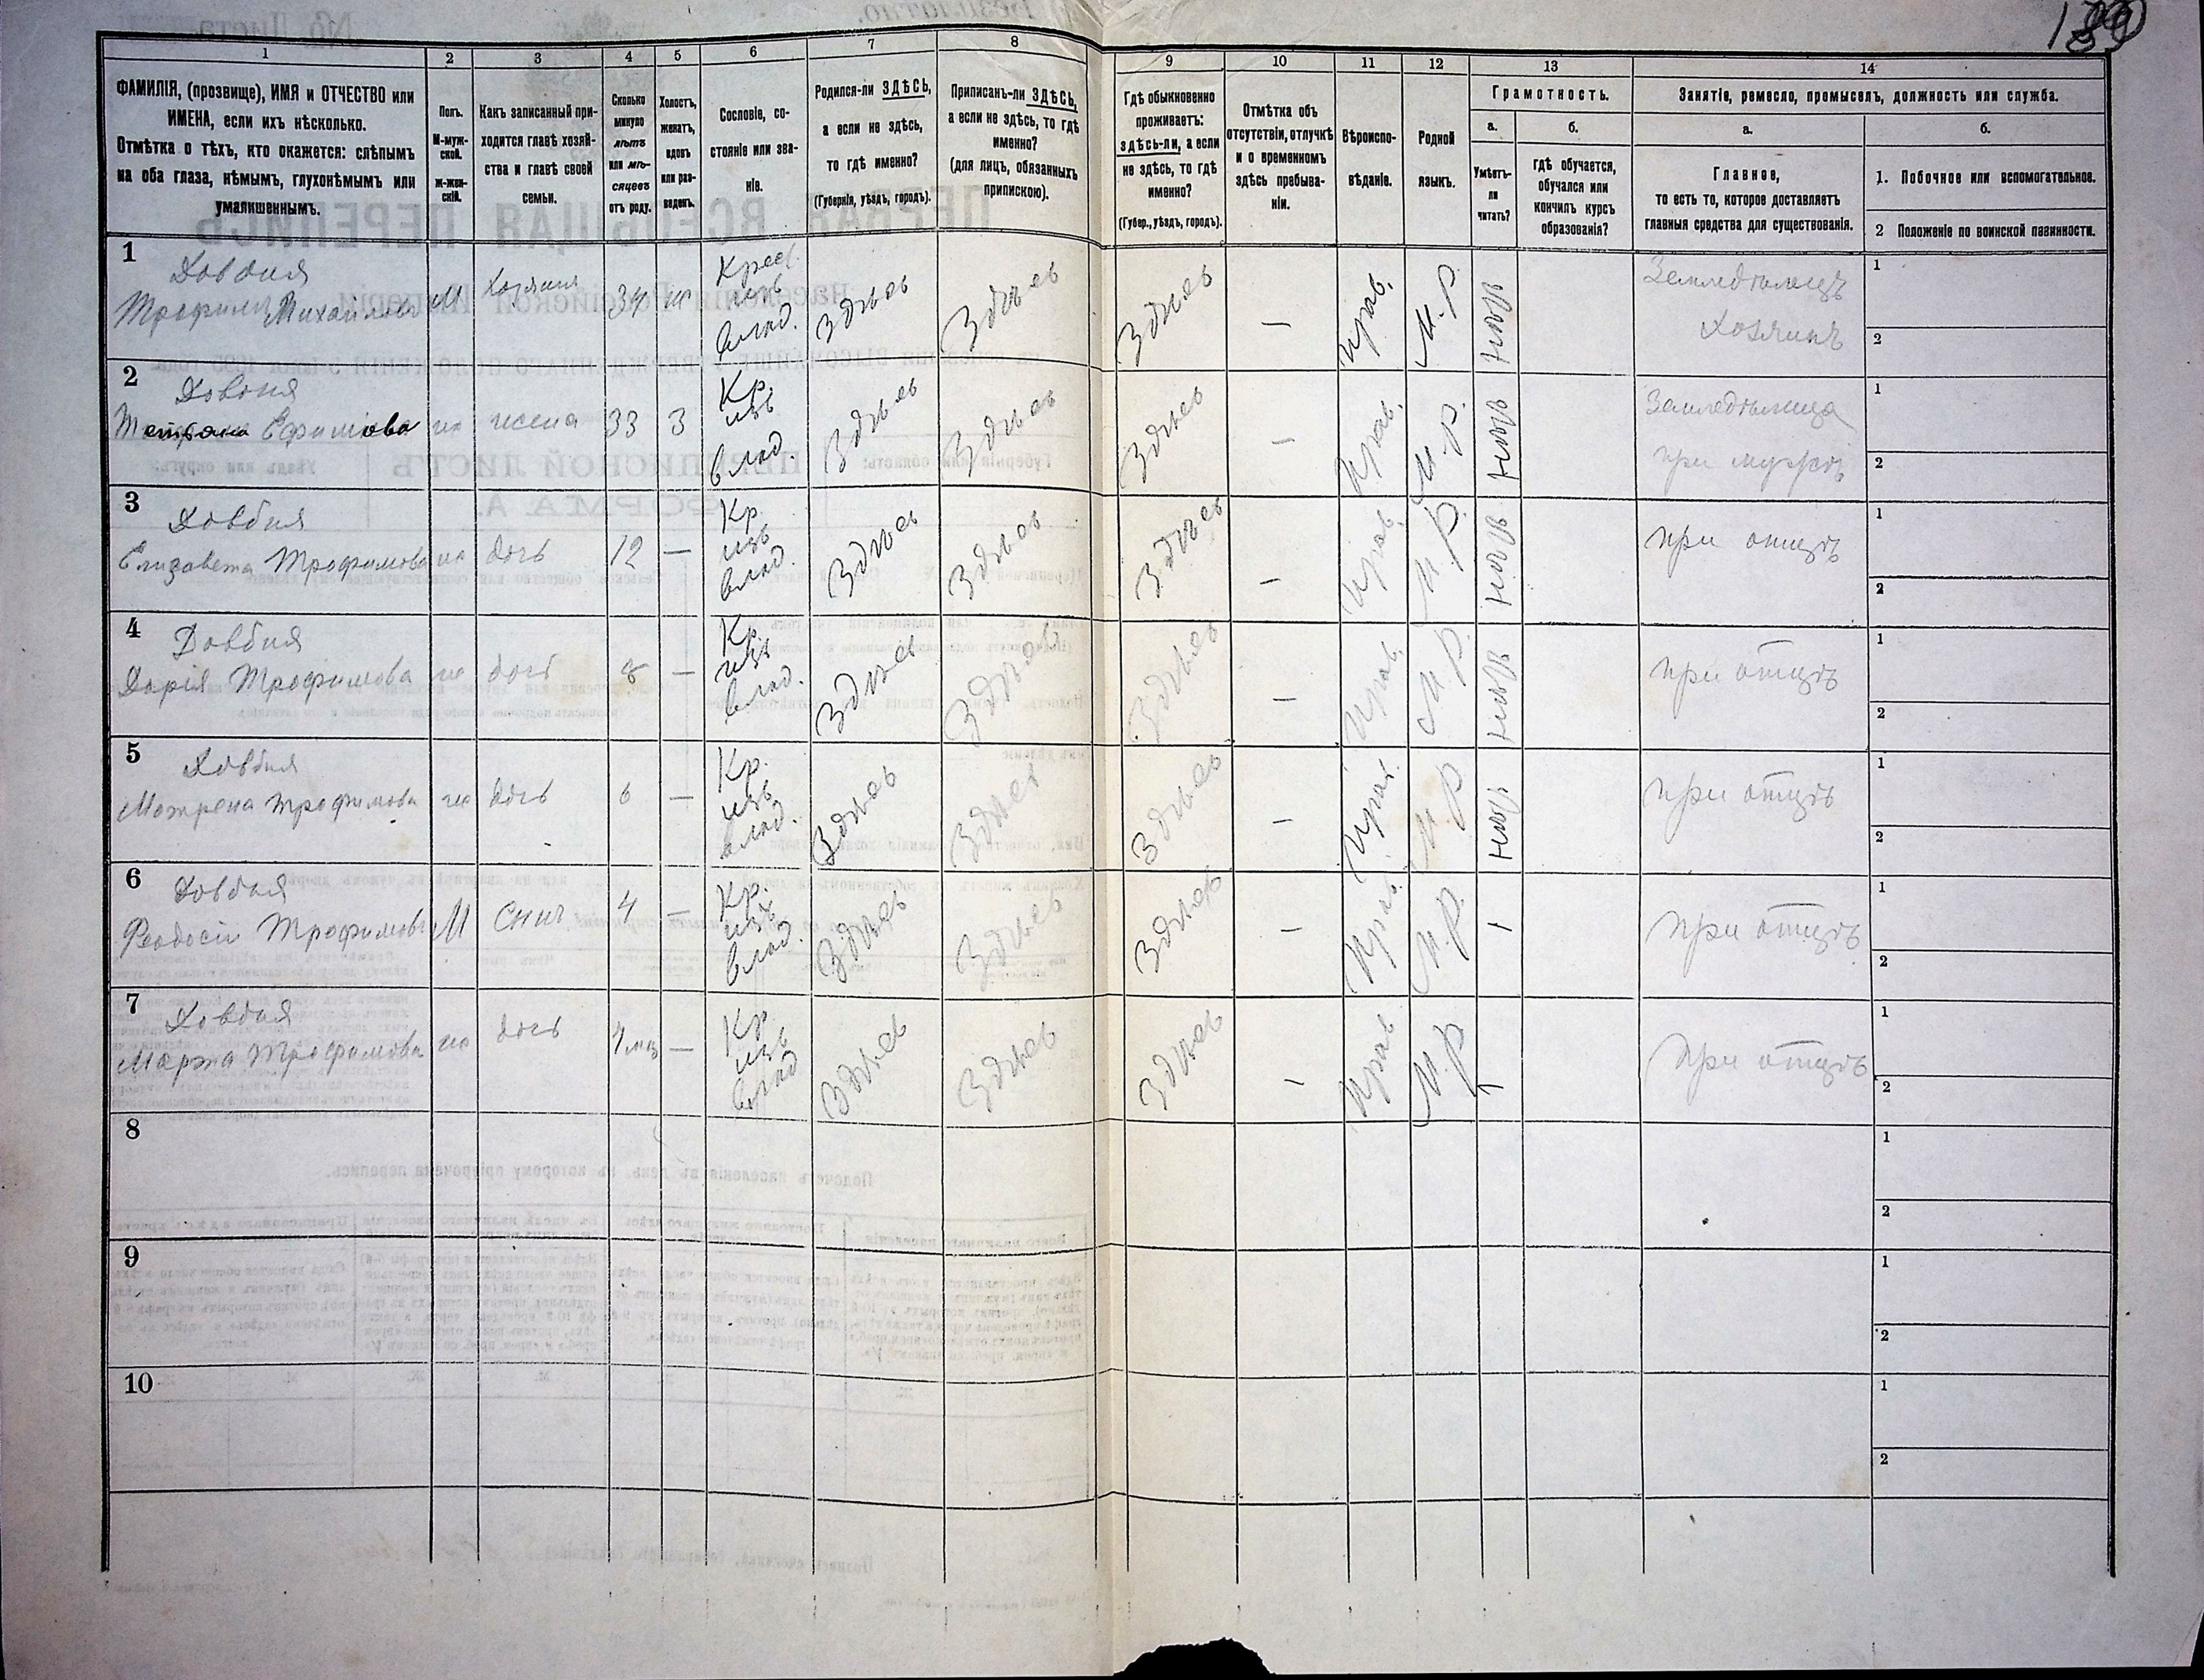 139
1 2 3 4 5 6 7 8 9 10 11 12 13 14
ФАМИЛІЯ, (прозвище), ИМЯ и ОТЧЕСТВО или
ИМЕНА, если ихъ нѣсколько.
Отмѣтка о тѣхъ, кто окажется: слѣпымъ
на оба глаза, нѣмымъ, глухонѣмымъ или
умалишеннымъ.
Полъ.
М-муж-
ской.
ж-жен-
скій.
Какъ записанный при-
ходится главѣ хозяй-
ства и главѣ своей
семьи.
Сколько
минуло
лѣтъ
или мѣ-
сяцевъ
отъ роду.
Холостъ,
женатъ,
вдовъ
или раз-
веденъ.
Сословіе, со-
стояніе или зва-
ніе.
Родился-ли ЗДѢСЬ,
а если не здѣсь,
то гдѣ именно?
(Губернія, уѣздъ, городъ).
Приписанъ-ли ЗДѢСЬ,
а если не здѣсь, то гдѣ
именно?
(для лицъ, обязанныхъ
припискою).
Гдѣ обыкновенно
проживаетъ:
здѣсь-ли, а если
не здѣсь, то гдѣ
именно?
(Губер., уѣздъ, городъ).
Отмѣтка объ
отсутствіи, отлучкѣ
и о временномъ
здѣсь пребыва-
ніи.
Вѣроиспо-
вѣданіе.
Родной
языкъ.
Грамотность.
а.
Умѣетъ-
ли
читать?
б.
гдѣ обучается,
обучался или
кончилъ курсъ
образованія?
Занятіе, ремесло, промыселъ, должность или служба.
а.
Главное,
то есть то, которое доставляетъ
главныя средства для существованія.
б.
1. Побочное или вспомогательное.
2 Положеніе по воинской повинности.
1
Довбня
Трофимъ Михайловъ М Хозяинъ 34 ж Крест. изъ влад. Здѣсь Здѣсь Здѣсь — прав. М.Р. нѣтъ
Земледѣлецъ
Хозяинъ
1
2
2
Довбня
Ефимова ж жена 33 З Кр. изъ влад. Здѣсь Здѣсь Здѣсь — Прав. М.Р. нѣтъ
Земледѣлица
при мужѣ
1
2
3
Довбня
Елизавета Трофимова ж дочь 12 — Кр. изъ влад. Здѣсь Здѣсь Здѣсь — Прав. М.Р. нѣтъ
при отцѣ
1
2
4
Довбня
Дарія Трофимова ж дочь 8 — Кр. изъ влад. Здѣсь Здѣсь Здѣсь — Прав. М.Р. нѣтъ
при отцѣ
1
2
5
Довбня
Мотрена Трофимова ж дочь 6 — Кр. изъ влад. Здѣсь Здѣсь Здѣсь — Прав. М.Р. нѣтъ
при отцѣ
1
2
6
Довбня
Феодосій Трофимовъ М Синъ 4 — Кр. изъ влад. Здѣсь Здѣсь Здѣсь — Прав. М.Р. —
при отцѣ
1
2
7
Довбня
Марфа Трофимова ж дочь 4 мц — Кр. изъ влад. Здѣсь Здѣсь Здѣсь — Прав М.Р. —
при отцѣ
1
2
8
1
2
9
1
2
10
1
2